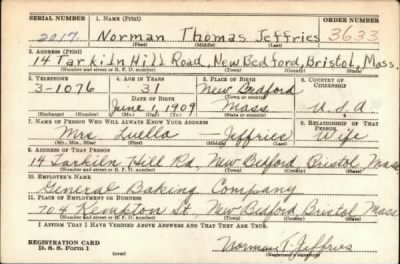 SERIAL NUMBER 1. NAME (Print) ORDER NUMBER
2017 Norman Thomas Jeffries 3633
(First) (Middle) (Last)
2. ADDRESS (Print)
14 Tarkiln Hill Road, New Bedford, Bristol, Mass.
(Number and street or R. F. D. number) (Town) (County) (State)
3. TELEPHONE 4. AGE IN YEARS 5. PLACE OF BIRTH 6. COUNTRY OF CITIZENSHIP
3-1076 31 New Bedford
DATE OF BIRTH (Town or county)
June 1, 1909 Mass U.S.A
(Exchange) (Number) (Mo.) (Day) (Yr.) (State or country)
7. NAME OF PERSON WHO WILL ALWAYS KNOW YOUR ADDRESS 8. RELATIONSHIP OF THAT PERSON
Mrs. Luella — Jeffries Wife
(Mr., Mrs., Miss) (First) (Middle) (Last)
9. ADDRESS OF THAT PERSON
14 Tarkiln Hill Rd, New Bedford Bristol Mass
(Number and street or R. F. D. number) (Town) (County) (State)
10. EMPLOYER'S NAME
General Baking Company
11. PLACE OF EMPLOYMENT OR BUSINESS
704 Kempton St, New Bedford Bristol Mass
(Number and street or R. F. D. number) (Town) (County) (State)
I AFFIRM THAT I HAVE VERIFIED ABOVE ANSWERS AND THAT THEY ARE TRUE.
REGISTRATION CARD
D. S. S. Form 1 (over) Norman T. Jeffries
(Registrant's signature)